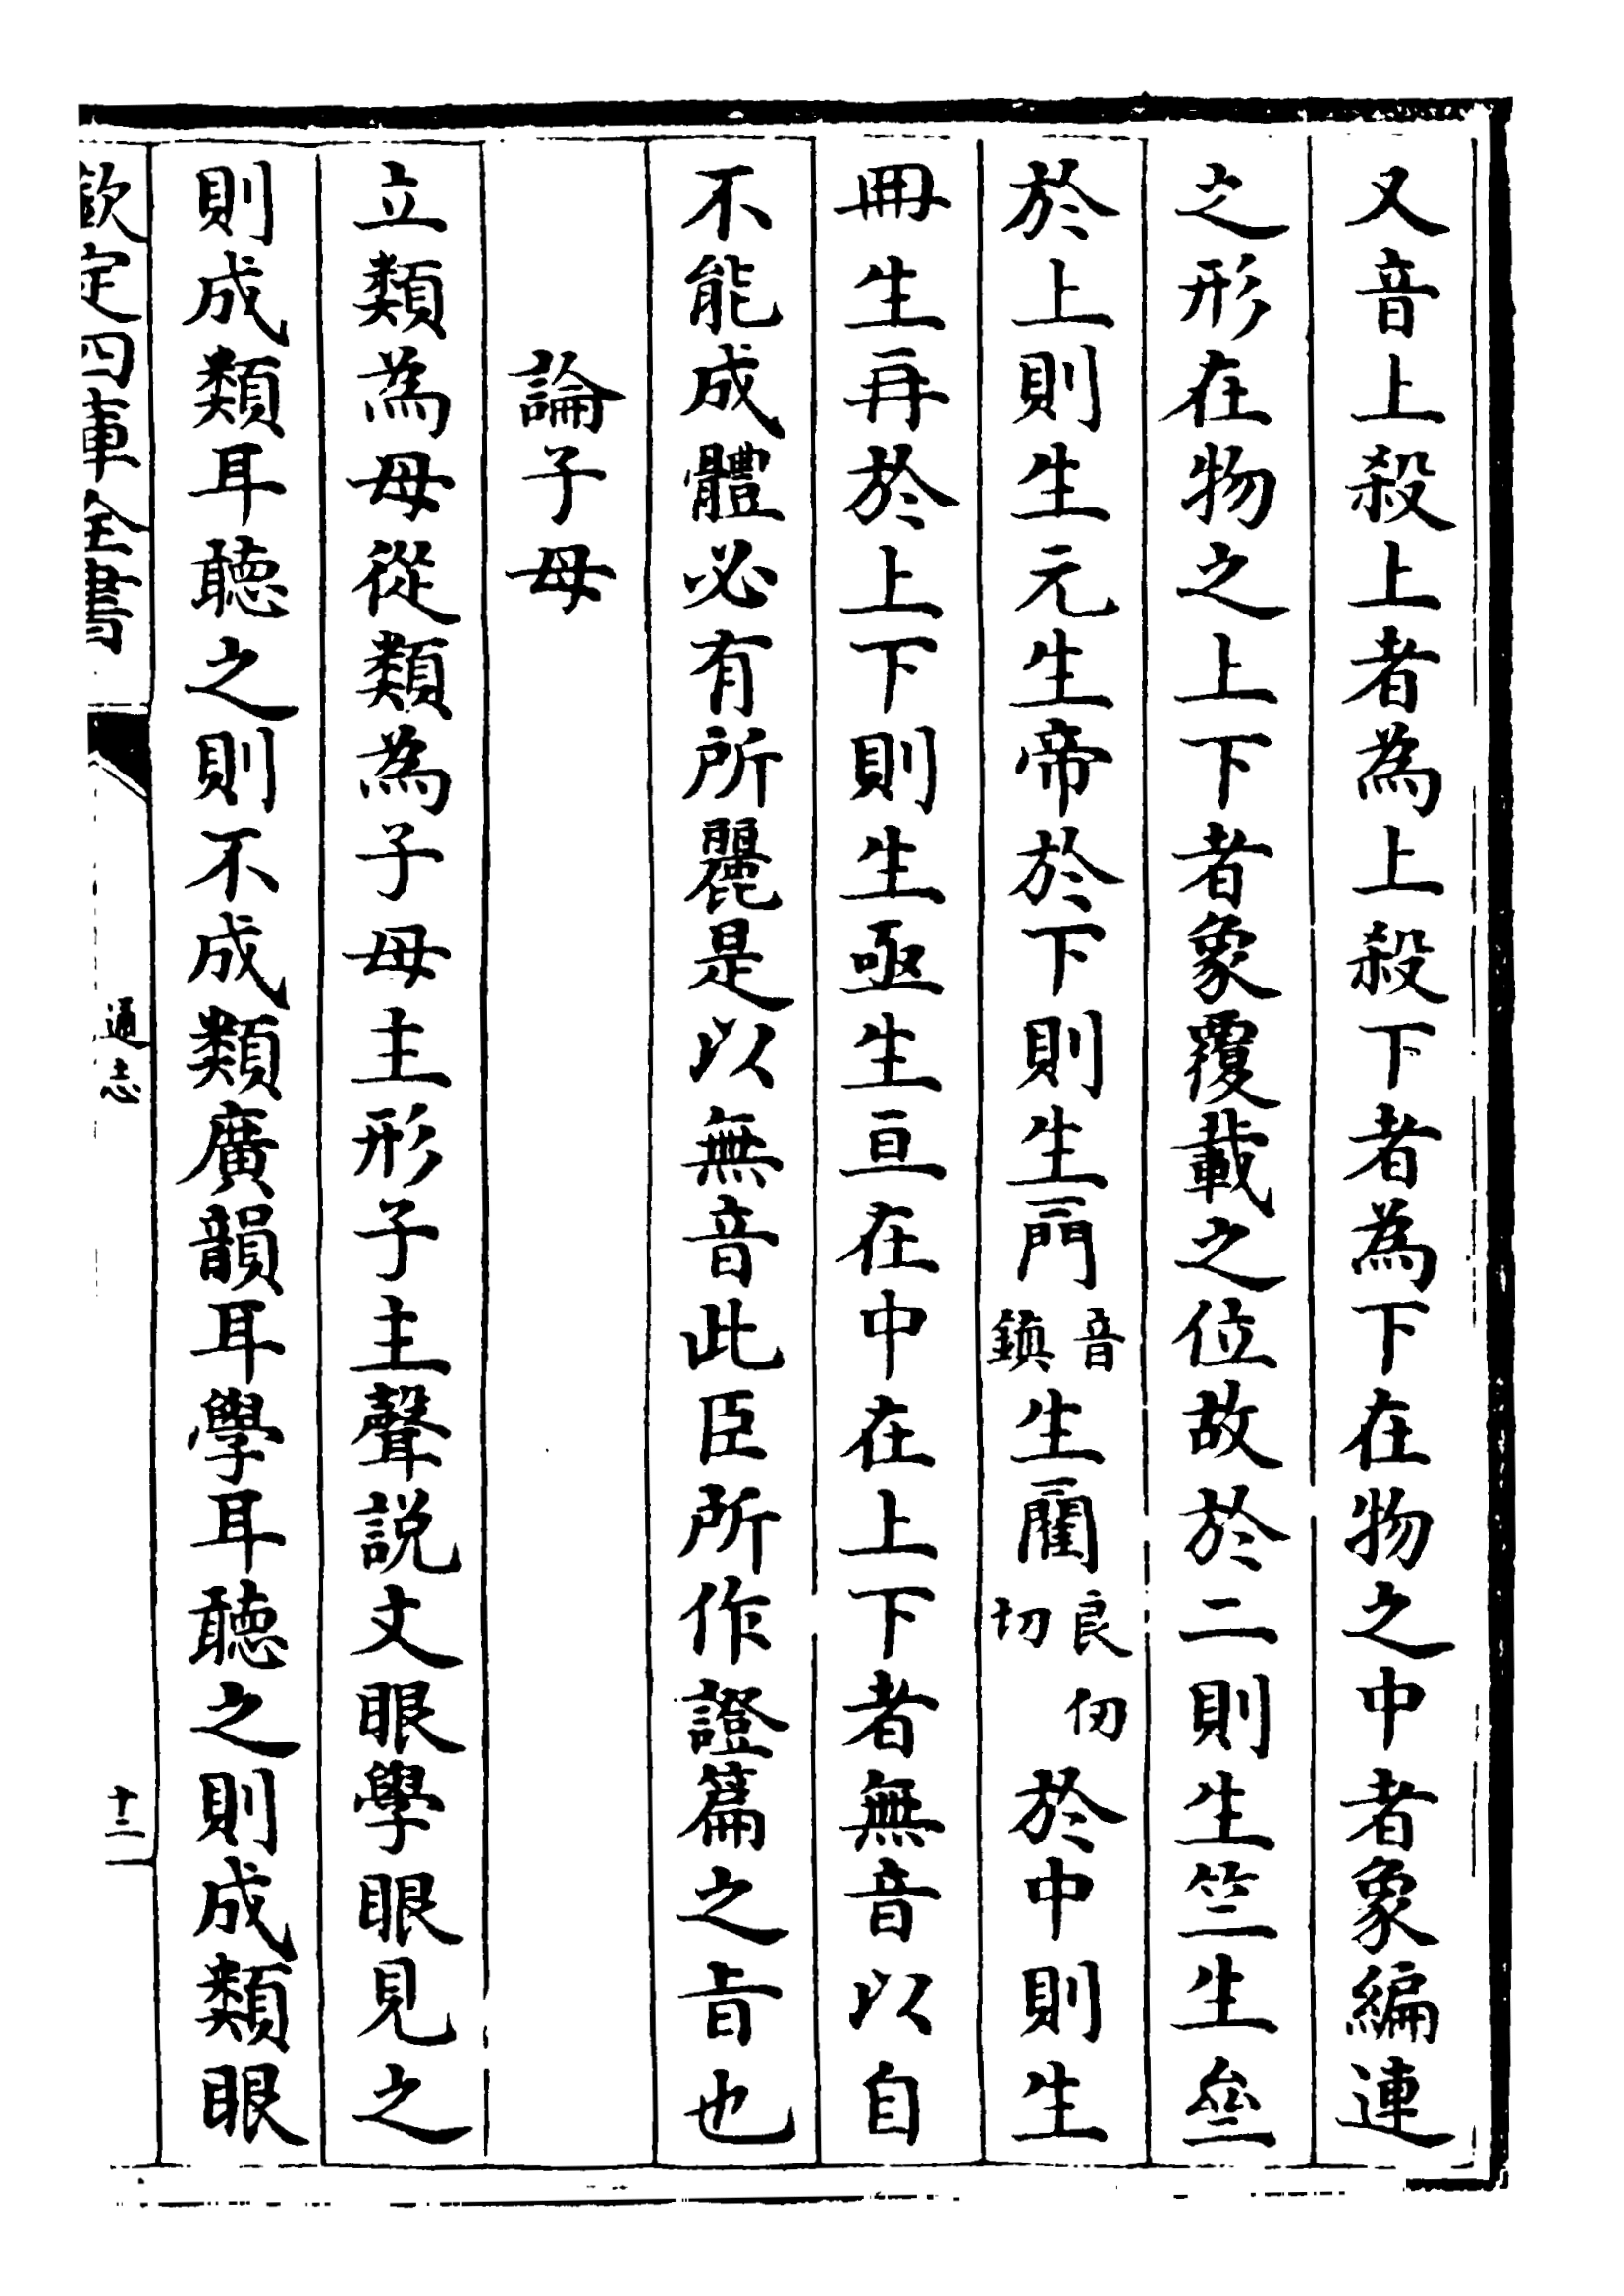 又音上殺上者為上殺下者為下在物之中者象編連
之形在物之上下者象覆載之位故於二則生竺生
於上則生元生帝於下則生音鎮生良仞切於中則生
冊生再於上下則生亟生亘在中在上下者無音以自
不能成體必有所麗是以無音此臣所作證篇之㫖也
論子母
立類為母從類為子母主形子主聲説文眼學眼見之
則成類耳聽之則不成類廣韻耳學耳聽之則成類眼
欽定四庫全書
通志
十三